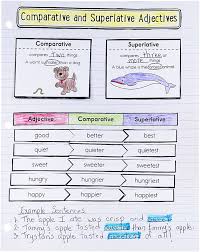 Comparative and Superlative Adjectives
Comparative
compares two things
A worm is smaller than a dog
Superlative
compares three or
more things
A blue whale is the
Adjective Comparative Superlative
good better best
quiet quieter quietest
sweet sweeter sweetest
hungry hungrier hungriest
happy happier happiest
Example Sentences
1. The apple I ate was crisp and sweet.
2. Tommy's apple tasted sweeter than Jimmy's apple.
3. Trystan's apple tasted sweetest of all!